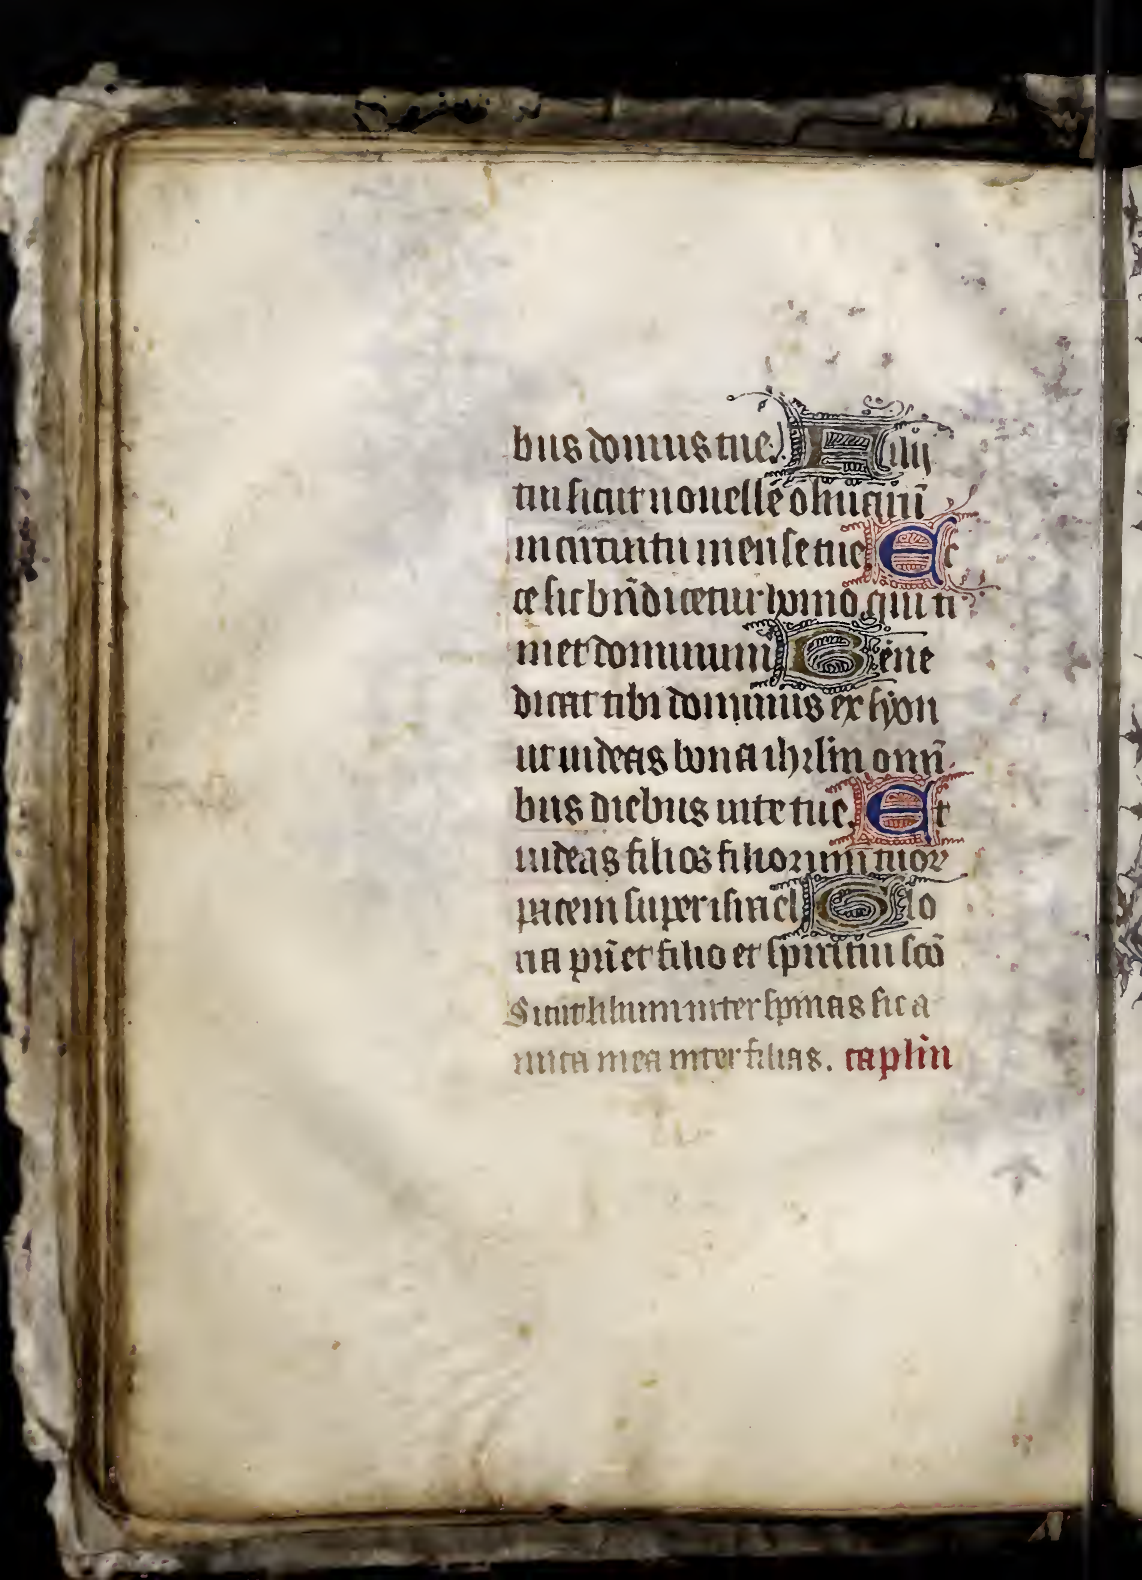 bus domus tue. Filij
tui sicut nouelle oliuarū
in circuitu mense tue. Ec
ce sic bn̄dicetur homo qui ti
met dominum. Bene
dicat tibi dominus ex syon
ut uideas bona ihrl̄m omī
bus diebus uite tue. Et
uideas filios filiorum tuoꝝ
pacem super isrl̄. Glo
ria pr̄i et filio et spiritui scō
Sicut lilium inter spinas sic a
mica mea inter filias. caplm̄